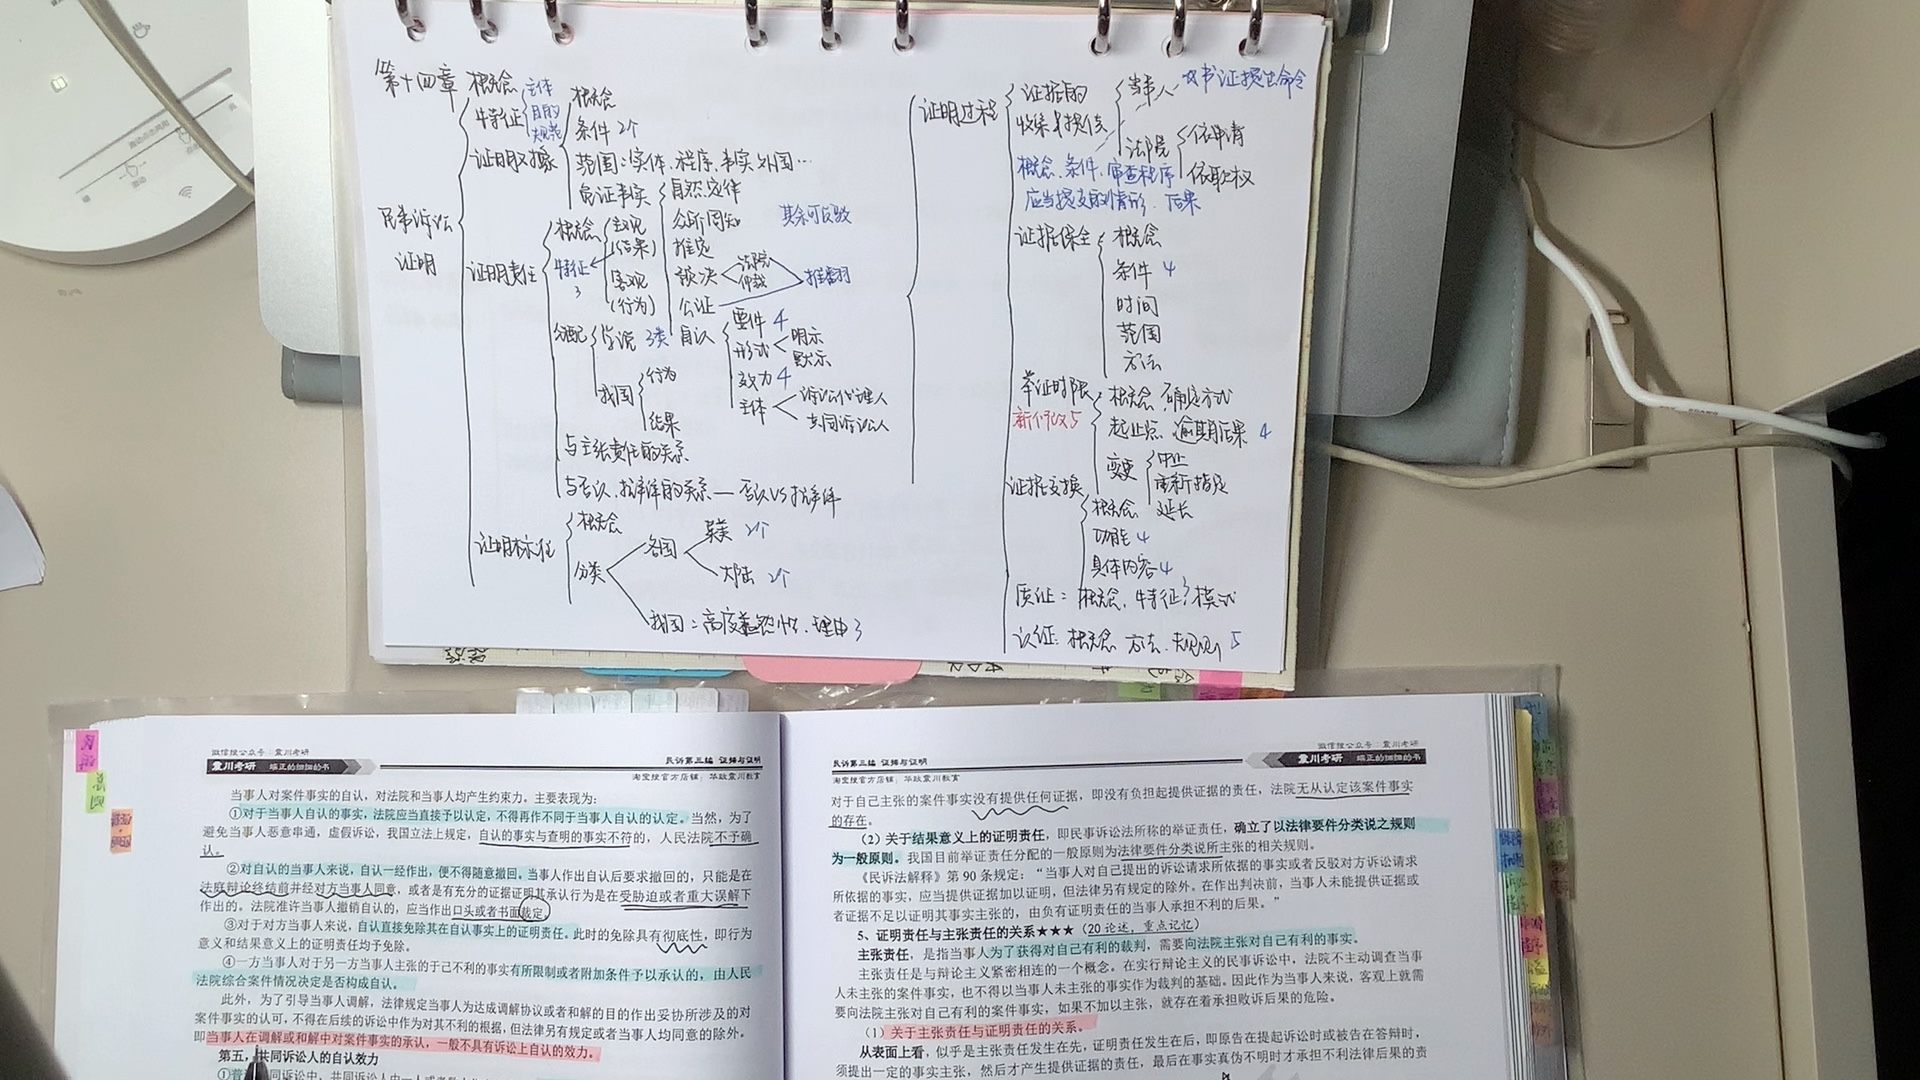 第十四章
民事诉讼
证明
概念
特征
主体
目的
规范
证明对象
概念
条件 2个
范围：实体、程序、事实 外国…
免证事实
自然定律
众所周知
推定
裁决
法院
仲裁
公证
推翻
其余可反驳
自认
要件 4
形式
明示
默示
效力 4
主体
诉讼代理人
共同诉讼人
证明责任
概念
主观
(结果)
客观
(行为)
特征
3
分配
学说 3类
我国
行为
结果
与主张责任的关系
与否认、抗辩的关系—否认VS抗辩
证明标准
概念
分类
各国
英美 2个
大陆 2个
我国：高度盖然性、理由3
证明过程
证据的
收集与提供
当事人
书证提出命令
法院
依申请
依职权
概念、条件、审查程序
应当提交的情形、后果
证据保全
概念
条件 4
时间
范围
方法
举证时限
概念 确定方式
起止点 逾期后果 4
变更
中止
重新指定
延长
证据交换
概念
功能 4
具体内容 4
质证：概念、特征3 模式
认证：概念 方法、规则 5
微信搜公众号：震川考研
震川考研 端正的细细的书
民诉第三编 证据与证明
淘宝搜官方店铺：华政震川教育
当事人对案件事实的自认，对法院和当事人均产生约束力。主要表现为：
①对于当事人自认的事实，法院应当直接予以认定，不得再作不同于当事人自认的认定。当然，为了
避免当事人恶意串通，虚假诉讼，我国立法上规定，自认的事实与查明的事实不符的，人民法院不予确
认。
②对自认的当事人来说，自认一经作出，便不得随意撤回。当事人作出自认后要求撤回的，只能是在
法庭辩论终结前并经对方当事人同意，或者是有充分的证据证明其承认行为是在受胁迫或者重大误解下
作出的。法院准许当事人撤销自认的，应当作出口头或者书面裁定。
③对于对方当事人来说，自认直接免除其在自认事实上的证明责任。此时的免除具有彻底性，即行为
意义和结果意义上的证明责任均予免除。
④一方当事人对于另一方当事人主张的于己不利的事实有所限制或者附加条件予以承认的，由人民
法院综合案件情况决定是否构成自认。
此外，为了引导当事人调解，法律规定当事人为达成调解协议或者和解的目的作出妥协所涉及的对
案件事实的认可，不得在后续的诉讼中作为对其不利的根据，但法律另有规定或者当事人均同意的除外。
即当事人在调解或和解中对案件事实的承认，一般不具有诉讼上自认的效力。
第五，共同诉讼人的自认效力
民诉第三编 证据与证明
淘宝搜官方店铺：华政震川教育
微信搜公众号：震川考研
震川考研 端正的细细的书
对于自己主张的案件事实没有提供任何证据，即没有负担起提供证据的责任，法院无从认定该案件事实
的存在。
（2）关于结果意义上的证明责任，即民事诉讼法所称的举证责任，确立了以法律要件分类说之规则
为一般原则。我国目前举证责任分配的一般原则为法律要件分类说所主张的相关规则。
《民诉法解释》第 90 条规定：“当事人对自己提出的诉讼请求所依据的事实或者反驳对方诉讼请求
所依据的事实，应当提供证据加以证明，但法律另有规定的除外。在作出判决前，当事人未能提供证据或
者证据不足以证明其事实主张的，由负有证明责任的当事人承担不利的后果。”
5、证明责任与主张责任的关系★★★（20 论述，重点记忆）
主张责任，是指当事人为了获得对自己有利的裁判，需要向法院主张对自己有利的事实。
主张责任是与辩论主义紧密相连的一个概念。在实行辩论主义的民事诉讼中，法院不主动调查当事
人未主张的案件事实，也不得以当事人未主张的事实作为裁判的基础。因此作为当事人来说，客观上就需
要向法院主张对自己有利的案件事实，如果不加以主张，就存在着承担败诉后果的危险。
（1）关于主张责任与证明责任的关系。
从表面上看，似乎是主张责任发生在先，证明责任发生在后，即原告在提起诉讼时或被告在答辩时，
须提出一定的事实主张，然后才产生提供证据的责任，最后在事实真伪不明时才承担不利法律后果的责